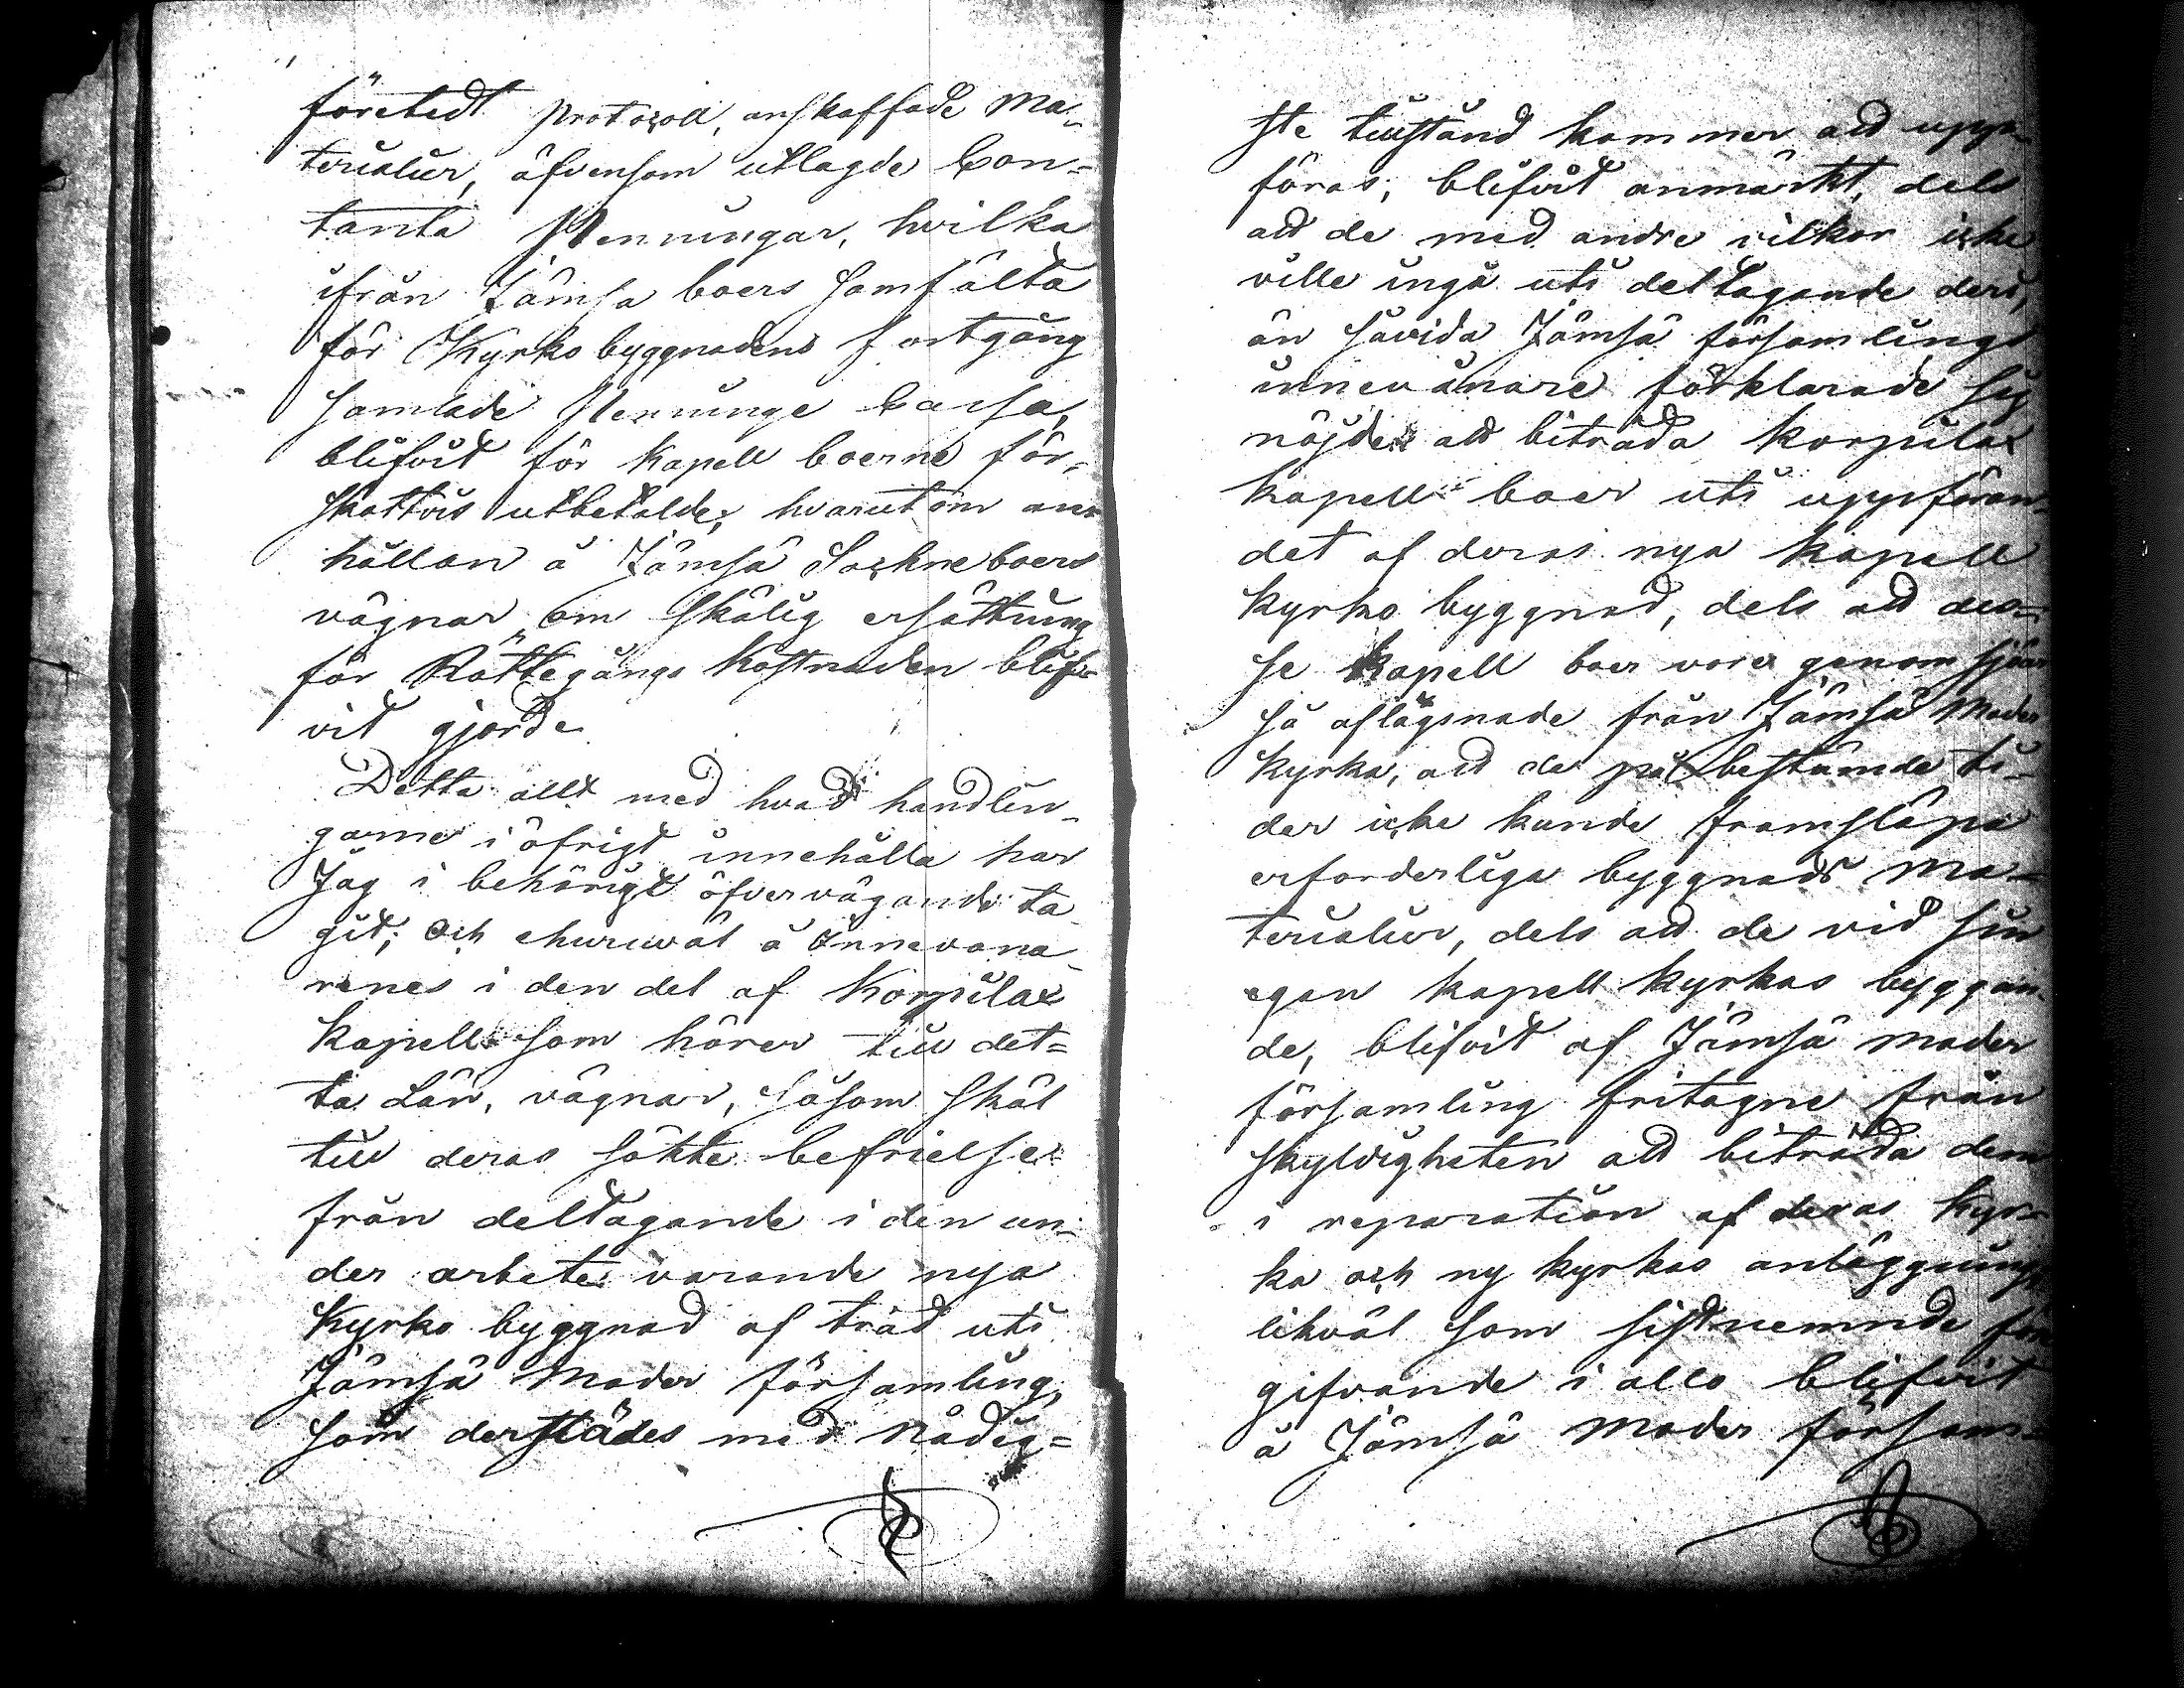 företedt protocoll, anskaffade Ma-
terialier, äfvensom utlagde Con=
tanta Penningar, hvilka
ifrån Jämsä boers samfälta
för Kyrko byggnadens fortgång
samlade Penninge Cassa,
blifvit för kapell boerne för-
skottvis utbetalde; hvarutom an-
hållan å Jämsä Sockneboers
vägnar om skälig ersättning
för Rättegångs Kostnaden blif-
vit gjord.
Detta allt med hvad handlin-
garne i öfrigt innehålla har
Jag i behörigt öfvervägande ta-
git; Och ehuruväl å Innevåna-
renes i den del af Korpilax
kapell som hörer till det=
ta Län, vägnar, såsom skäl
till deras sökte befrielse
från deltagande i den un-
der arbete varande nya
Kyrko byggnad af träd uti
Jämsä Moder församling,
som derstädes med Nådig=
ste tillstånd kommer att upp-
föras, blifvit anmärkt, dels
att de med andre vilkor icke
ville ingå uti deltagande deri,
än såvida Jämsä församlings
innevånare förklarade sig
nöjde att biträda Korpilax
kapell boer uti uppföran-
det af deras nya kapell
kyrko byggnad, dels att des-
se kapell boer vore genom sjöar
så aflägsnade från Jämsä Moder
kyrka, att de på bestämde ti-
der icke kunde framsläpa
erforderliga byggnads Ma-
terialier, dels att de vid sin
egen kapell kyrkas byggan-
de, blifvit af Jämsä moder
församling fritagne från
skyldigheten att biträda dem
i reparation af deras Kyr-
ka och ny kyrkas anläggning,
likväl som sistnemnde före
gifvande i allo blifvit
å Jämsä moder försam-